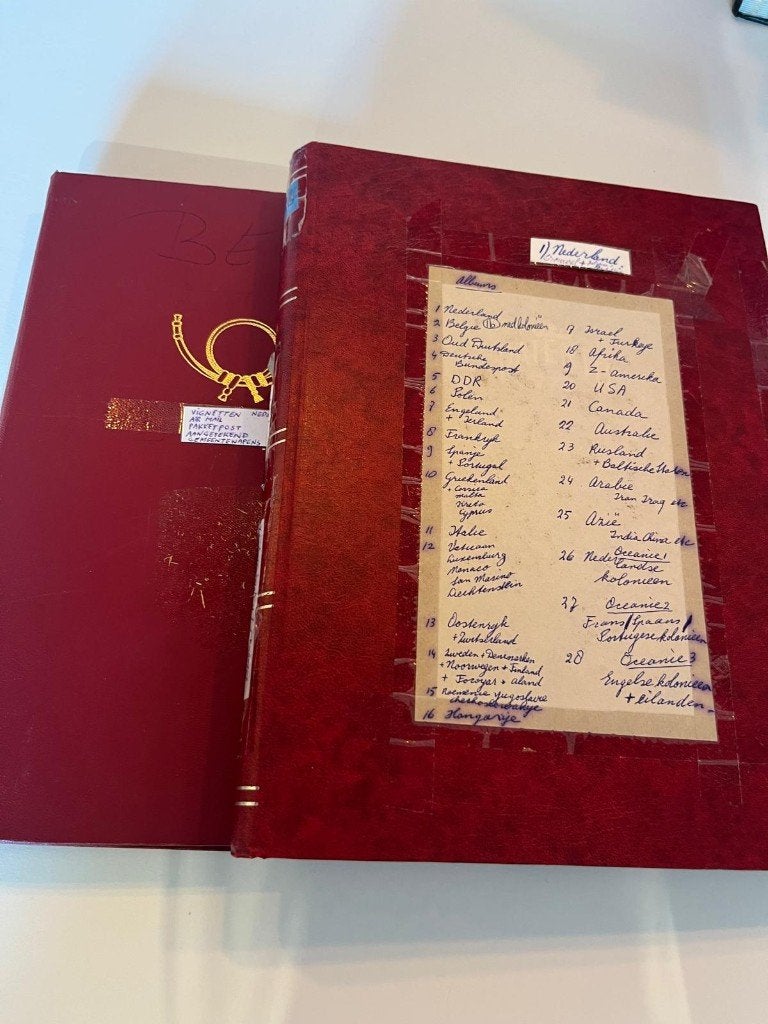 BE
VIGNETTEN NED
AIR MAIL
PAKKETPOST
AANGETEKEND
GEMEENTEWAPENS
1) Nederland
Albums
1 Nederland
2 Belgie 2b met koloniën
3 Oud Duitsland
4 Deutsche
Bundespost
5 DDR
6 Polen
7 Engeland
+ Ierland
8 Frankryk
9 Spanje
+ Portugal
10 Griekenland
+ Corsica
Malta
Kreta
Cyprus
11 Italie
12 Vaticaan
Luxemburg
Monaco
San Marino
Liechtenstein
13 Oostenryk
+ Zwitserland
14 Zweden + Denemarken
+ Noorwegen + Finland
+ Foroyar + Aland
15 Roemenie Yugoslavie
16 Hongarije
17 Israel
+ Turkeye
18 Afrika
19 Z-amerika
20 USA
21 Canada
22 Australie
23 Rusland
+ Baltische Staten
24 Arabie
Iran Iraq etc
25 Azië
India China etc
26 Oceanie 1
Nederlandse
kolonieen
27 Oceanie 2
Frans/Spaans/
Portugese kolonieen
28 Oceanie 3
Engelse kolonieen
+ eilanden